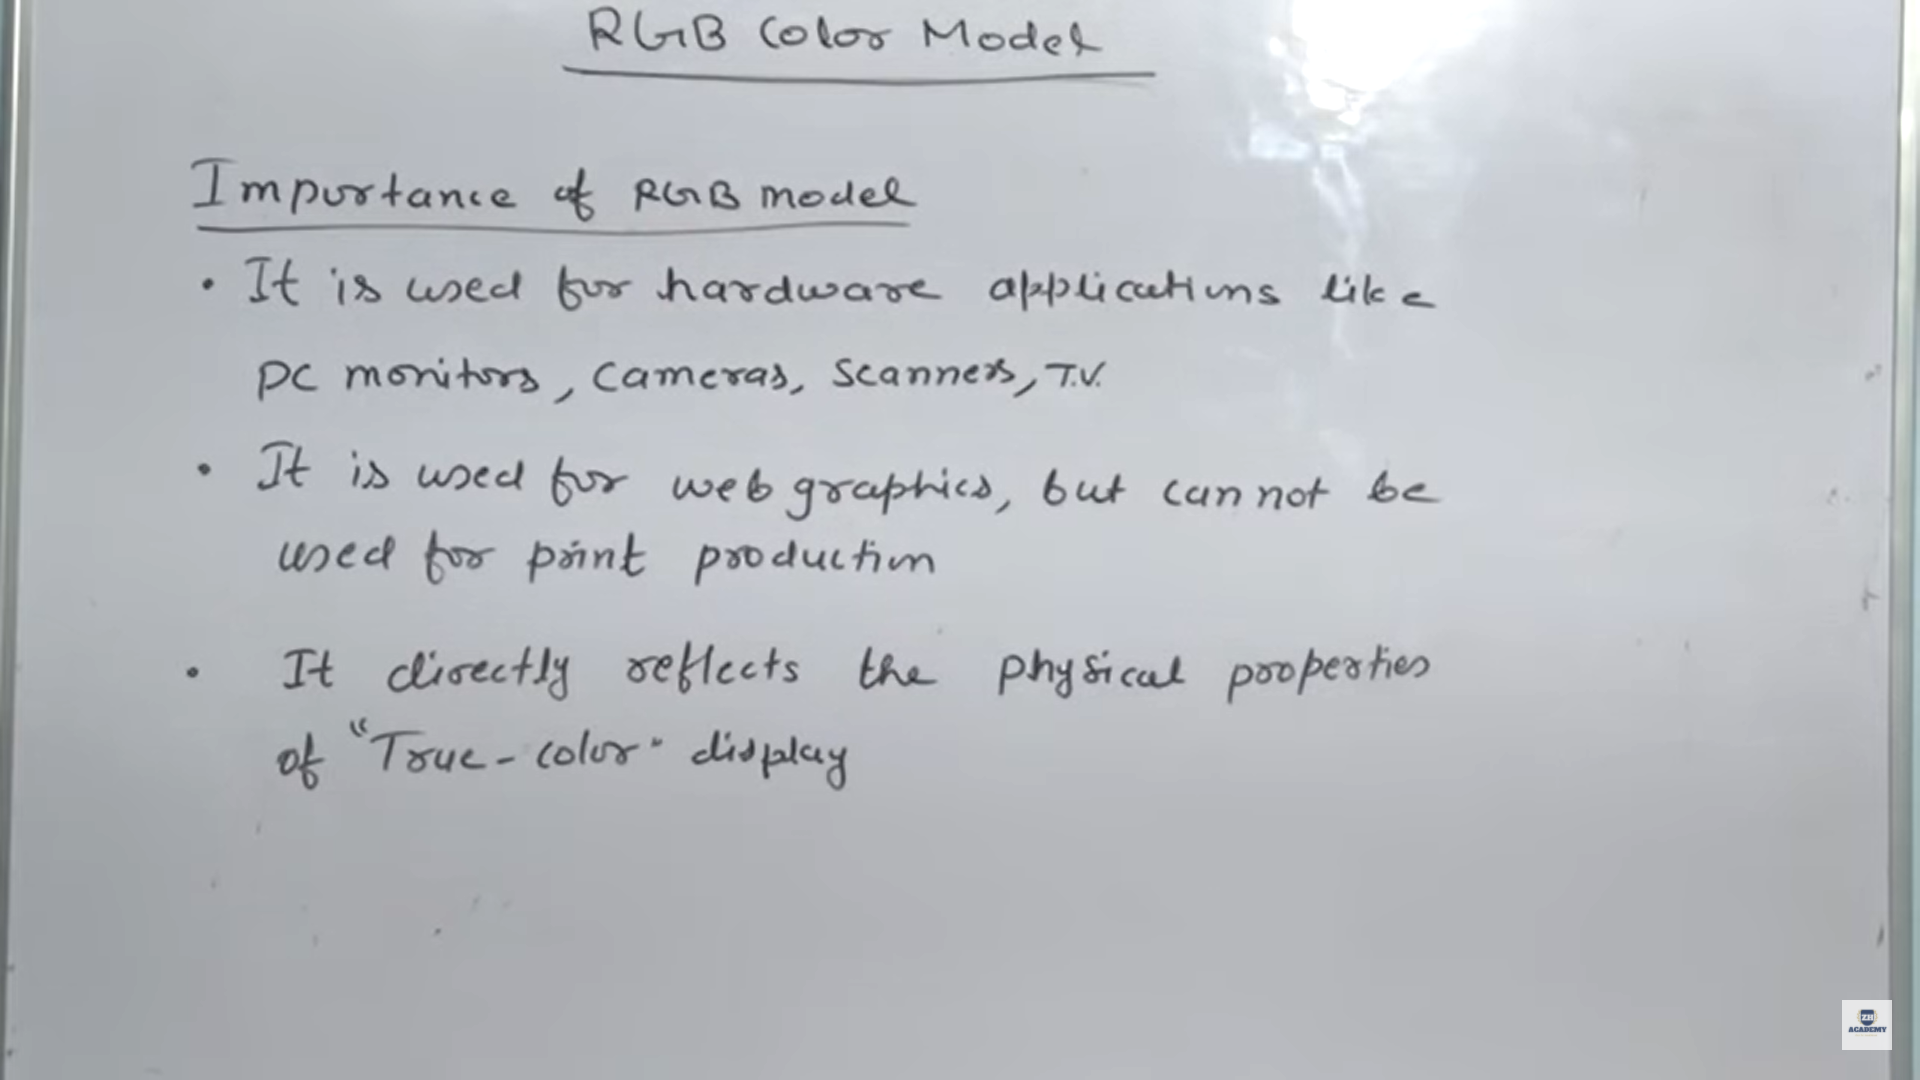 RGB Color Model
Importance of RGB model
• It is used for hardware applications like
PC monitors, cameras, scanners, T.V.
• It is used for web graphics, but cannot be
used for print production
• It directly reflects the physical properties
of "True-color" display
ZH
ACADEMY